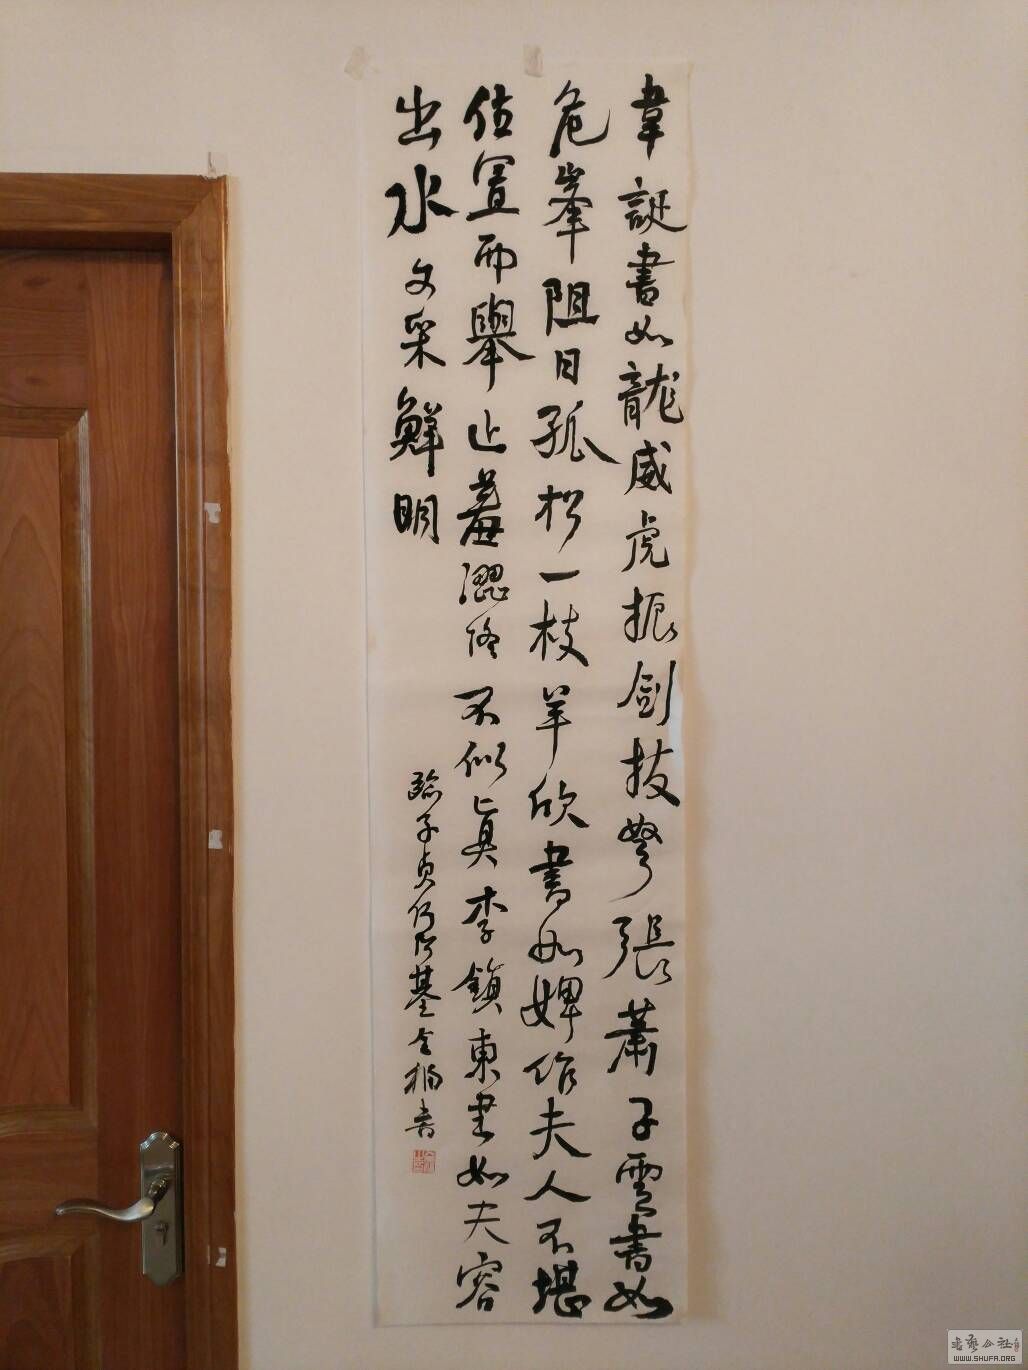 韋誕書如龍威虎振劍拔弩張蕭子雲書如
危峯阻日孤松一枝羊欣書如婢作夫人不堪
位置而舉止羞澀終不似真李鎮東書如夫容
出水文采鮮明
臨子貞何阿基書
书艺公社
WWW.SHUFA.ORG